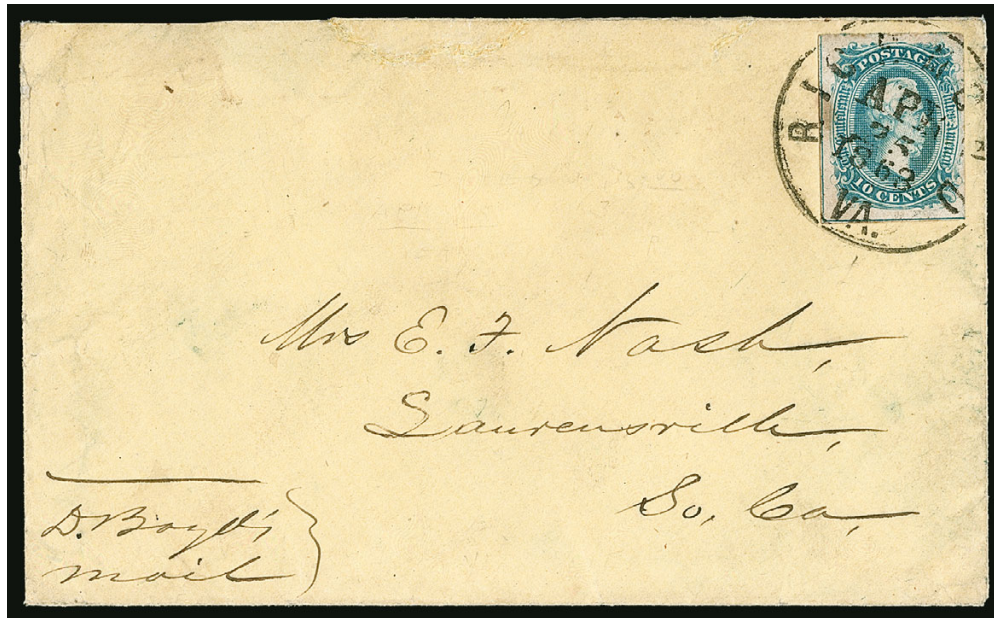 POSTAGE
10 CENTS
RICHMOND
APR
25
1863
VA.
Mrs E. F. Nash,
Laurensville,
So, Ca,
D. Boyd's
mail